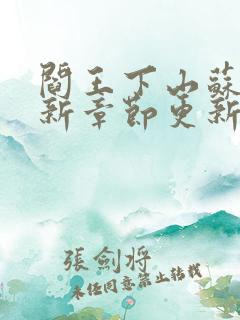 閻王下山蘇
新章節更新
張劍將
未經同意禁止轉載